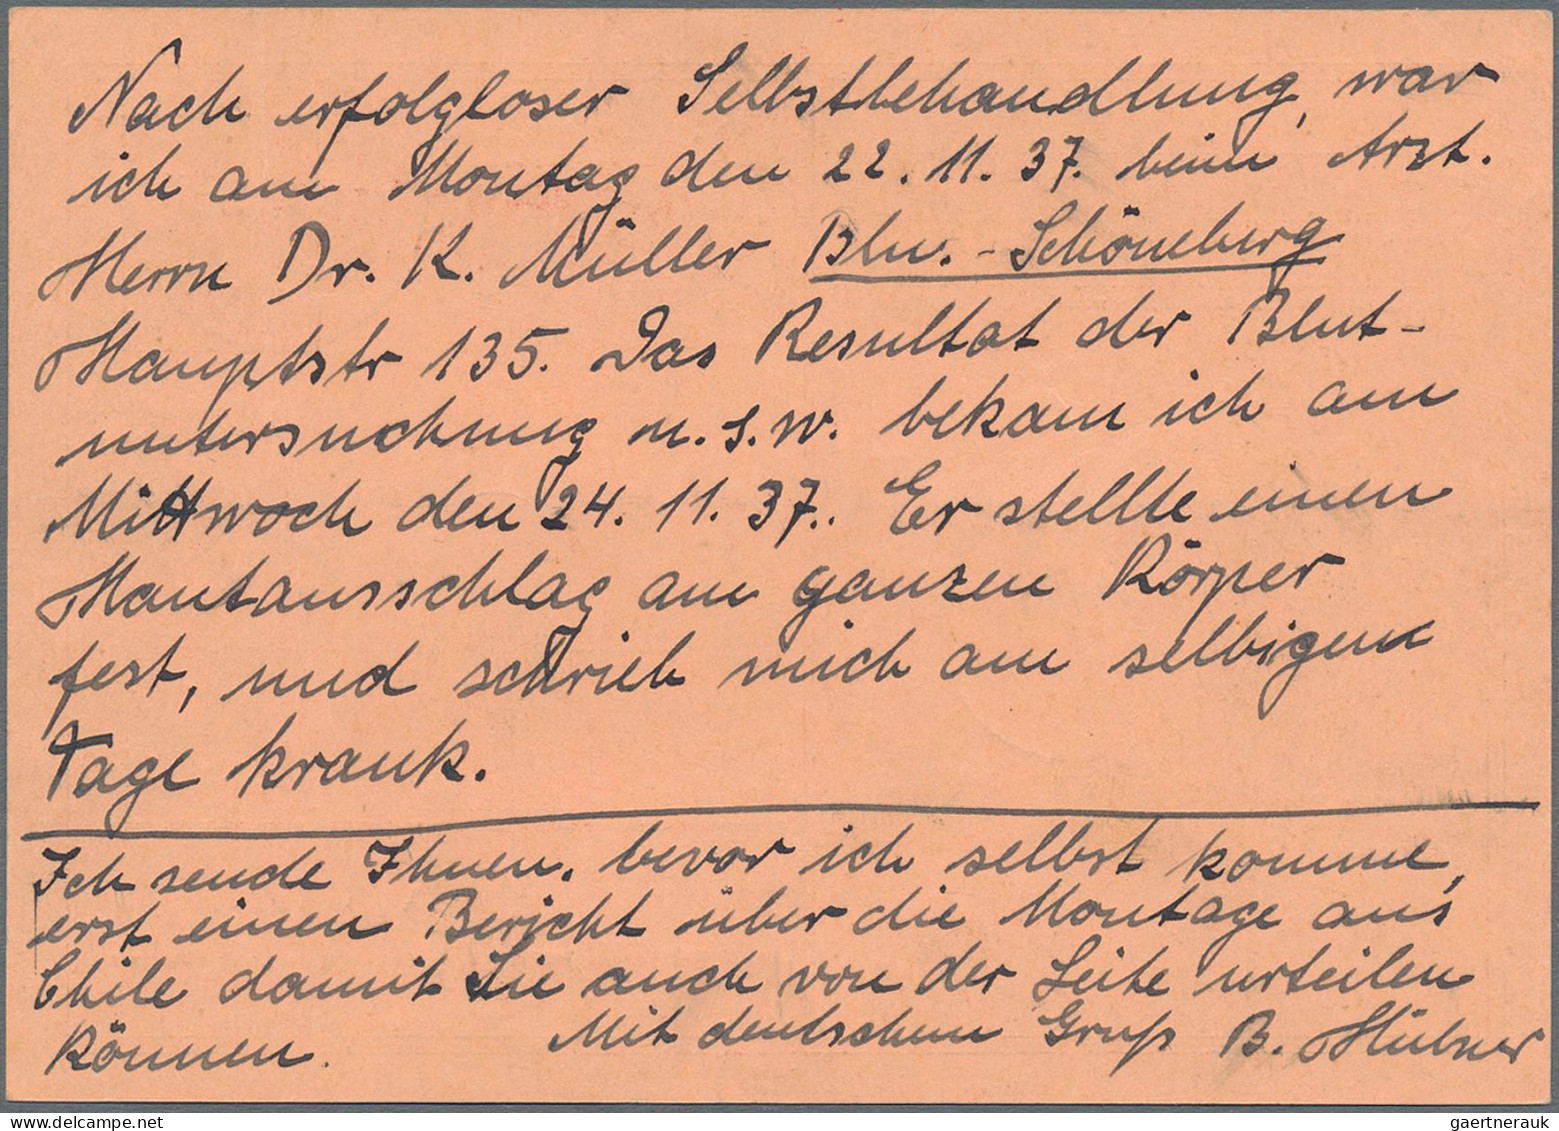 Nach erfolgloser Selbstbehandlung, war
ich am Montag den 22. 11. 37. beim Arzt.
Herrn Dr. K. Müller Bln. - Schöneberg
Hauptstr 135. Das Resultat der Blut-
untersuchung u. s. w. bekam ich am
Mittwoch den 24. 11. 37.. Er stellte einen
Hautausschlag am ganzen Körper
fest, und schrieb mich am selbigem
Tage krank.
Ich sende Ihnen, bevor ich selbst komme,
erst einen Bericht über die Montage aus
Chile damit Sie auch von der Seite urteilen
können. Mit deutschem Gruß B. Hübner
gaertnerauk